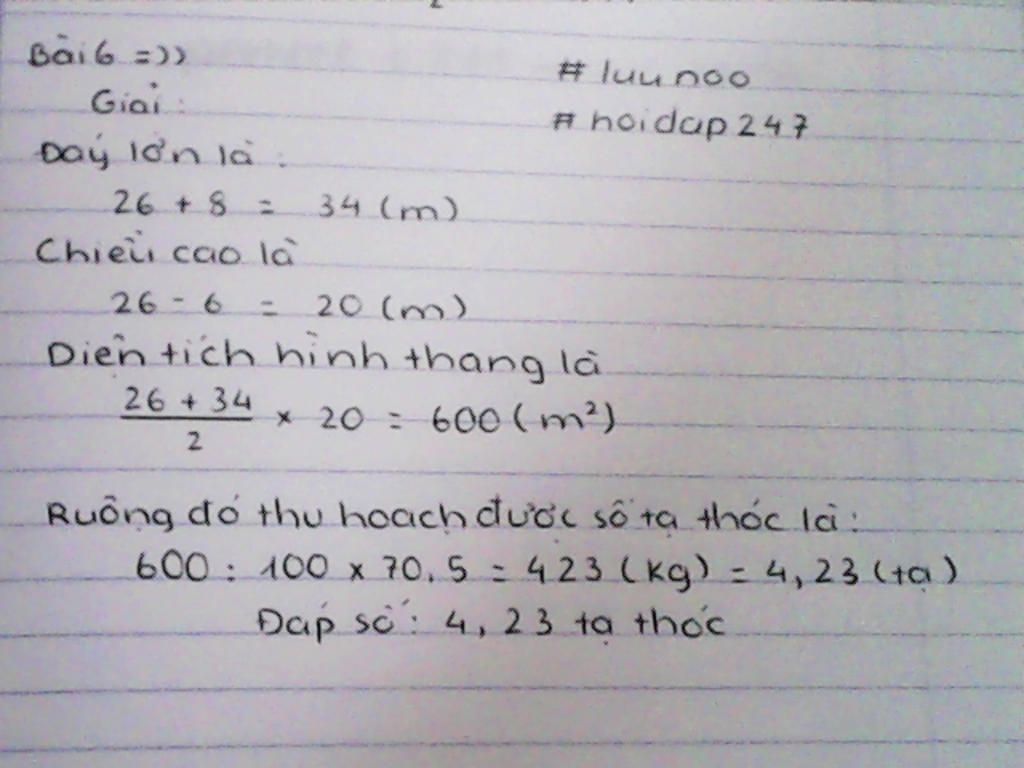 Bài 6 =))
#luunoo
Giải:
#hoidap247
Đáy lớn là:
26 + 8 = 34 (m)
Chiều cao là
26 - 6 = 20 (m)
Diện tích hình thang là
(26 + 34)/2 × 20 = 600 (m²)
Ruộng đó thu hoạch được số tạ thóc là:
600 : 100 × 70,5 = 423 (kg) = 4,23 (tạ)
Đáp số: 4,23 tạ thóc